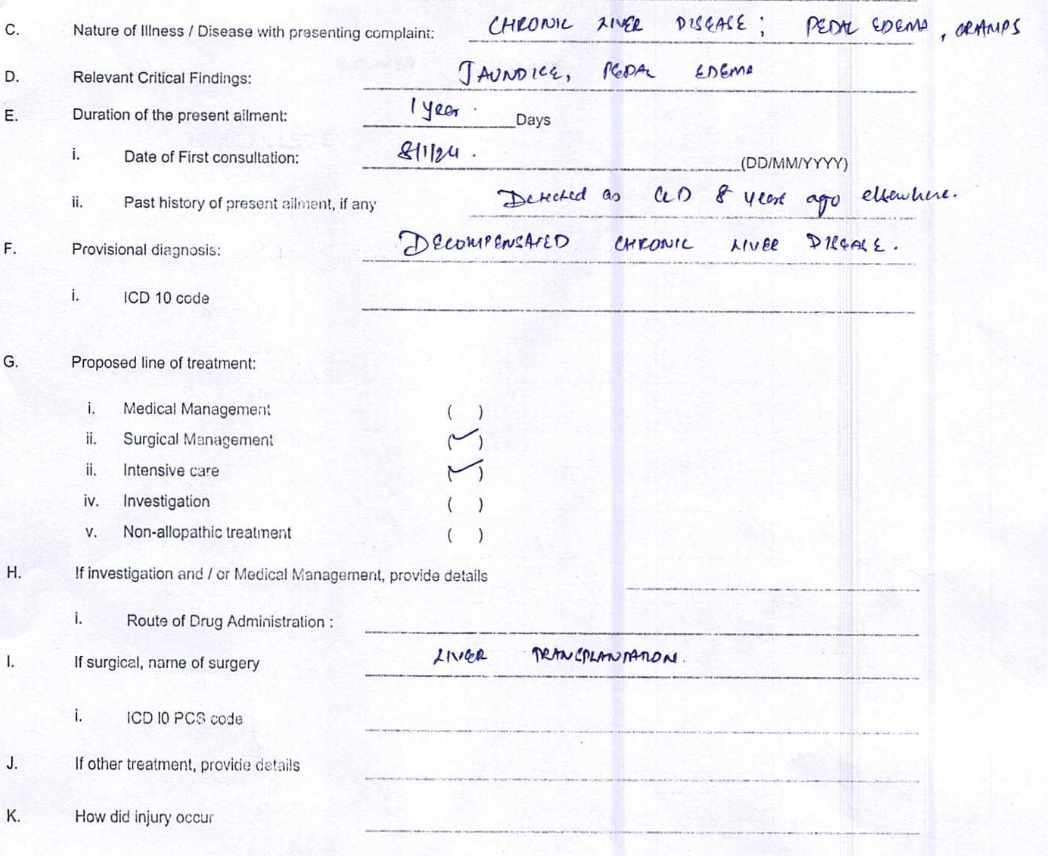 C. Nature of Illness / Disease with presenting complaint: CHRONIC LIVER DISEASE; PEDAL EDEMA, CRAMPS
D. Relevant Critical Findings: JAUNDICE, PEDAL EDEMA
E. Duration of the present ailment: 1 year. Days
i. Date of First consultation: 8/1/24. (DD/MM/YYYY)
ii. Past history of present ailment, if any Detected as CLD 8 years ago elsewhere.
F. Provisional diagnosis: DECOMPENSATED CHRONIC LIVER DISEASE.
i. ICD 10 code
G. Proposed line of treatment:
i. Medical Management ( )
ii. Surgical Management (✓)
ii. Intensive care (✓)
iv. Investigation ( )
v. Non-allopathic treatment ( )
H. If investigation and / or Medical Management, provide details
i. Route of Drug Administration :
I. If surgical, name of surgery LIVER TRANSPLANTATION.
i. ICD I0 PCS code
J. If other treatment, provide details
K. How did injury occur